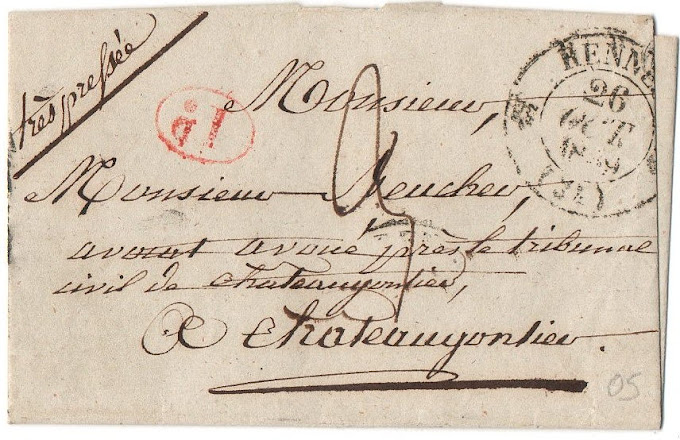 très pressée
Monsieur,
Monsieur
avocat avoué près le tribunal
civil de Chateaugontier,
A Chateaugontier.
RENNES
26
OCT
1839
(34)
05